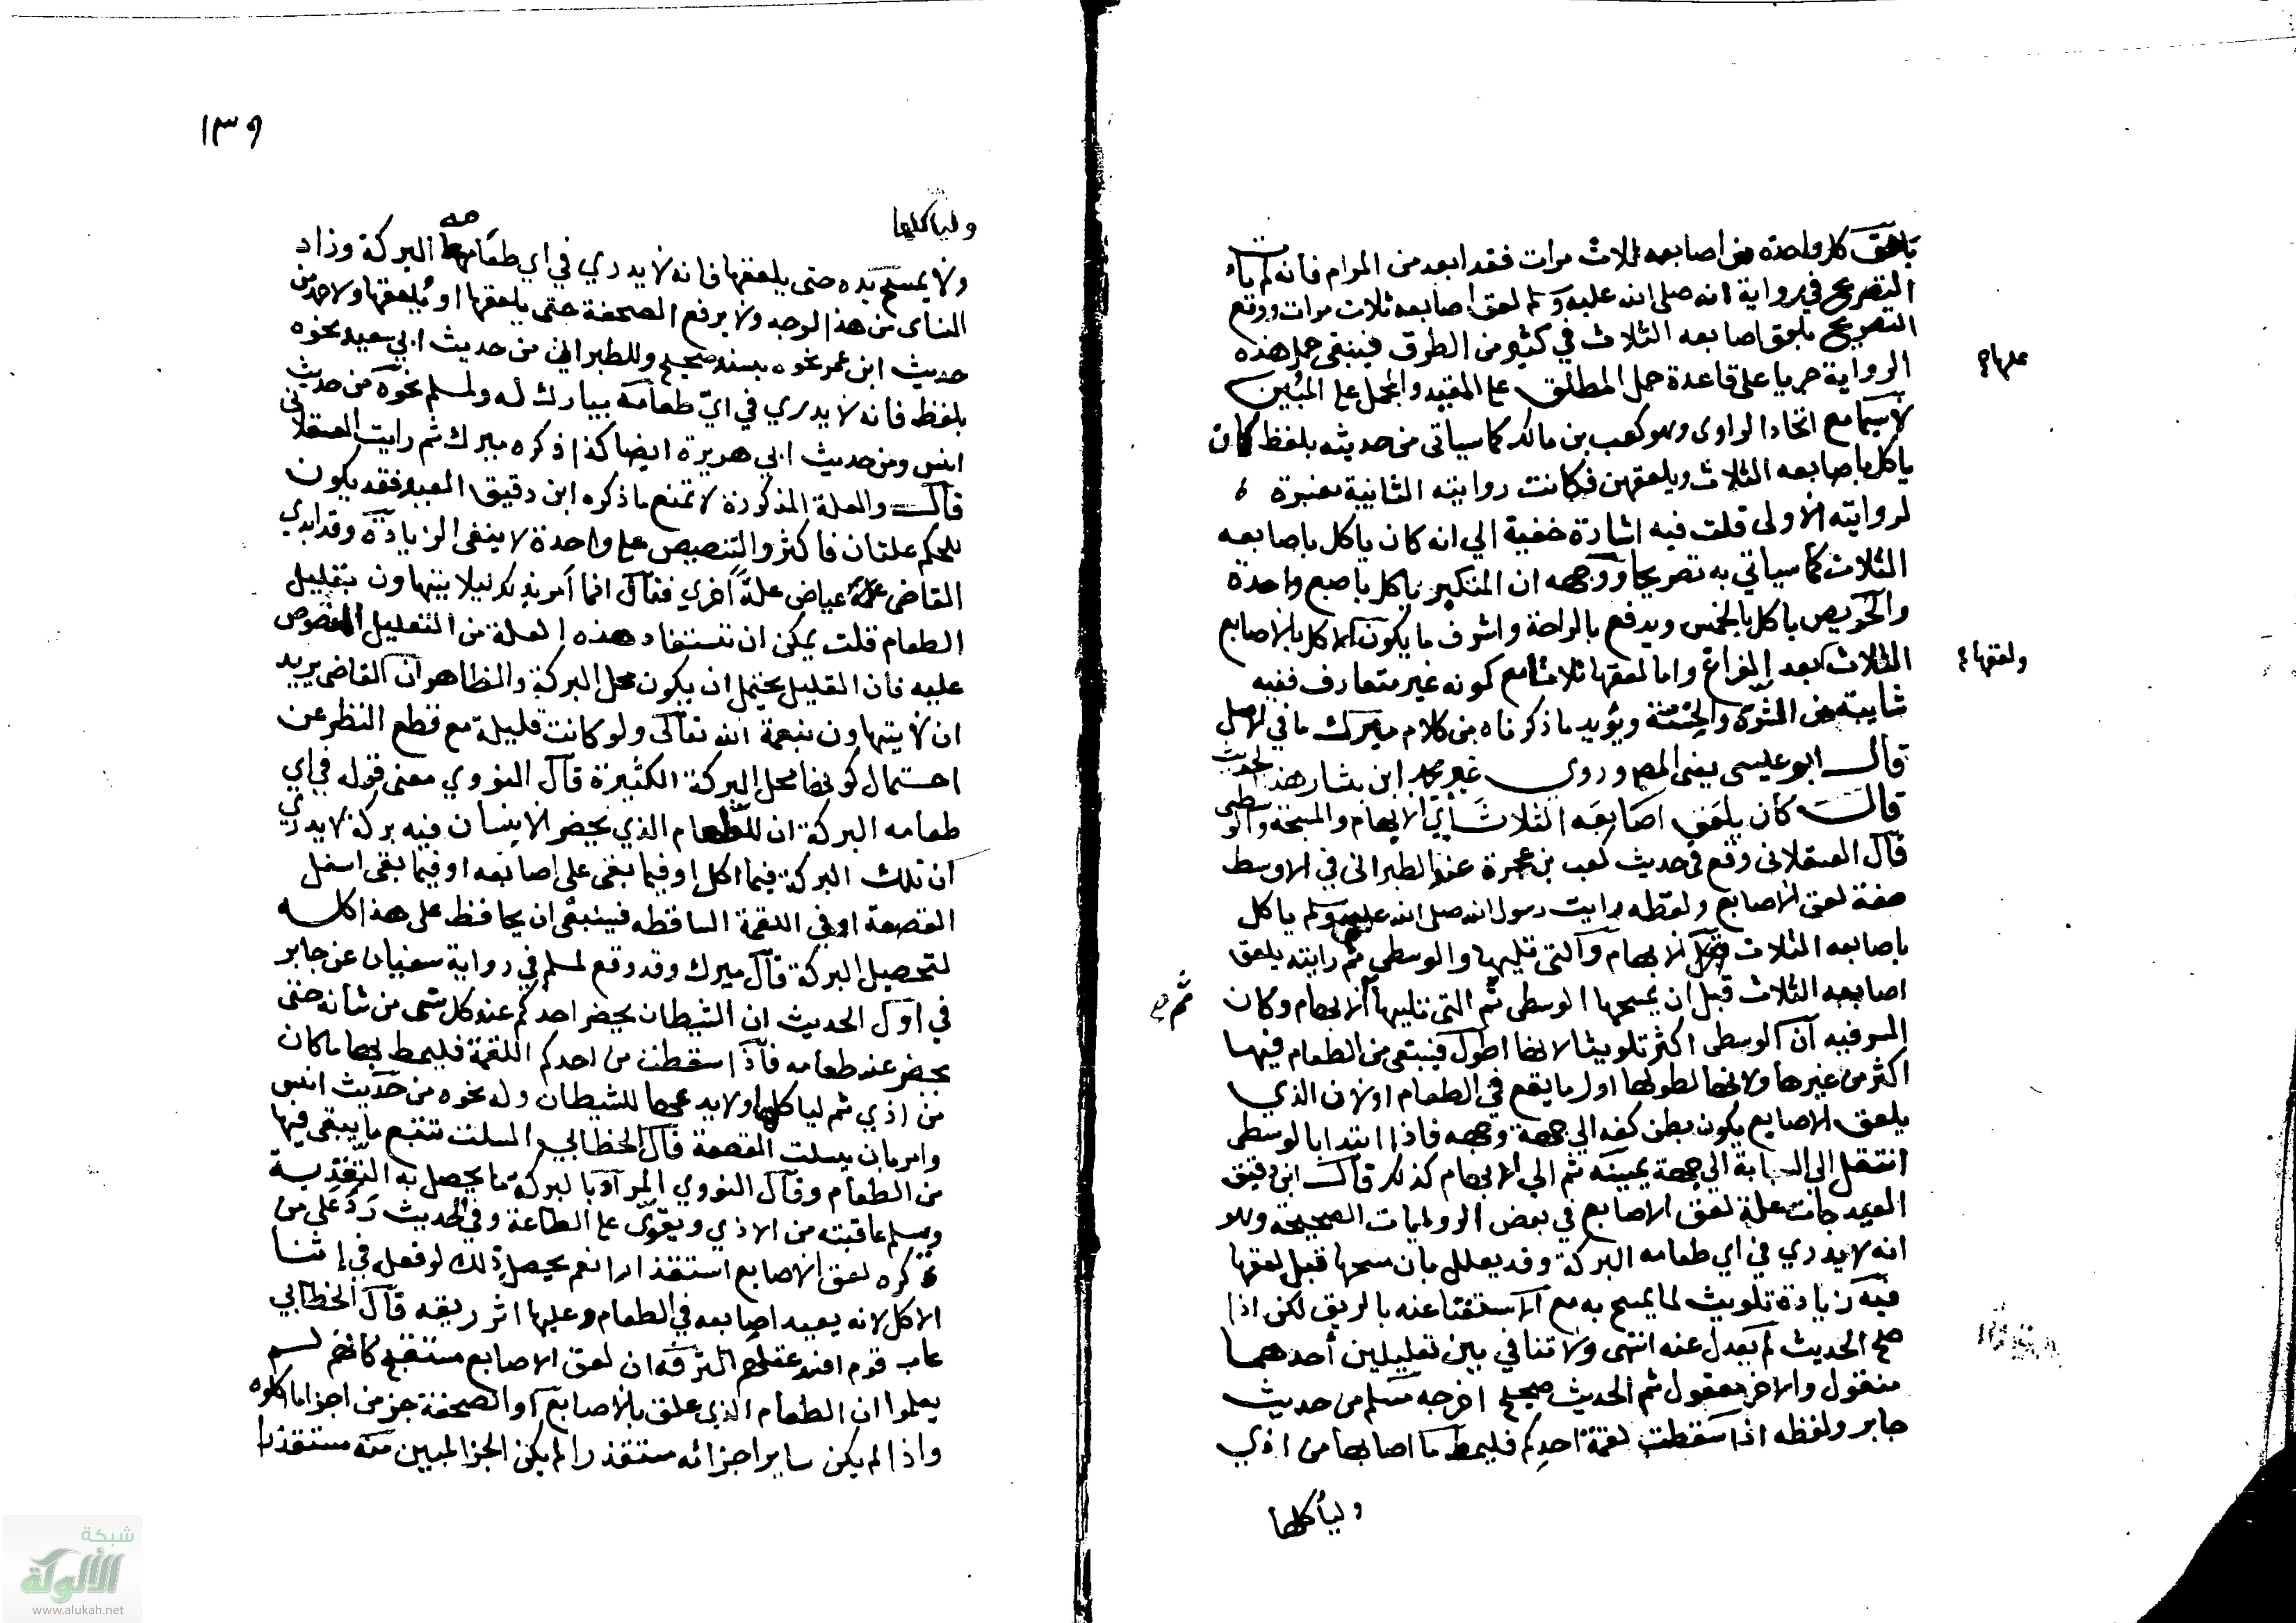 يلعق كل واحدة من اصابعه ثلاث مرات فقد ابعد من المرام فانه لم يات
التصريح في رواية انه صلى الله عليه وسلم لعق اصابعه ثلاث مرات ووقع
التصريح بلعق اصابعه الثلاث في كثير من الطرق فينبغي حمل هذه
عليها
الرواية جريا على قاعدة حمل المطلق على المقيد والمجمل على المبين
لاسيما مع اتحاد الراوى وهو كعب بن مالك كما سياتى من حديثه بلفظ كان
ياكل باصابعه الثلاث ويلعقهن فكانت روايته الثانية معتبرة
لروايته الاولى قلت فيه اشارة خفية الي انه كان ياكل باصابعه
الثلاث كما سياتي به تصريحا ووجهه ان المتكبر ياكل باصبع واحدة
والحريص ياكل بالخمس ويدفع بالراحة واشرف ما يكون الاكل بالاصابع
ولعقها
الثلاث بعد الفراغ واما لعقها ثلاثا مع كونه غير متعارف ففيه
شايبة من الشره والخسة ويؤيد ما ذكرناه من كلام ميرك ما في الاصل
قال ابو عيسى يعنى المص وروى غير محمد ابن بشار هذا الحديث
قال كان يلعق اصابعه الثلاث اي الابهام والمسبحة والوسطى
قال العسقلانى وقع في حديث كعب بن عجرة عند الطبرانى في الاوسط
صفة لعق الاصابع ولفظه رايت رسول الله صلى الله عليه وسلم ياكل
باصابعه الثلاث الابهام والتى تليها والوسطى ثم رايته يلعق
اصابعه الثلاث قبل ان يمسحها الوسطى ثم التى تليها الابهام وكان
ثم
السر فيه ان الوسطى اكثر تلويثا لانها اطول فيبقى من الطعام فيها
اكثر من غيرها ولانها لطولها اول ما يقع في الطعام اولان الذي
يلعق الاصابع يكون بطن كفه الي جهة وجهه فاذا ابتدا بالوسطى
انتقل الى السبابة الي جهة يمينه ثم الي الابهام كذلك قال ابن دقيق
العيد جات علة لعق الاصابع في بعض الروايات الصحيحة وهو
انه لا يدري في اي طعامه البركة وقد يعلل بان مسحها قبل لعقها
فيه زيادة تلويث لما يمسح به مع الاستغنا عنه بالريق لكن اذا
صح الحديث لم يعدل عنه انتهى ولا تنافي بين تعليلين أحدهما
منقول والاخر معقول ثم الحديث صحيح اخرجه مسلم من حديث
جابر ولفظه اذا سقطت لقمة احدكم فليمط ما اصابها من اذي
ولياكلها
١٣٩
ولياكلها
ولا يمسح يده حتى يلعقها فانه لا يدري في اي طعامه البركة وزاد
النساى من هذا الوجه ولا يرفع الصحفة حتى يلعقها او يُلعقها ولاحمد من
حديث ابن عمر نحوه بسند صحيح وللطبرانى من حديث ابي سعيد نحوه
بلفظ فانه لا يدري في اي طعامه يبارك له ولمسلم نحوه من حديث
انس ومن حديث ابي هريرة ايضا كذا ذكره ميرك ثم رايت العسقلانى
قال والعلة المذكورة لا تمنع ما ذكره ابن دقيق العيد فقد يكون
للحكم علتان فاكثر والتنصيص على واحدة لا ينفى الزيادة وقد ابدي
القاضى عياض علة اخري فقال انما امر بذلك ليلا يتهاون بتقليل
الطعام قلت يمكن ان تستفاد هذه العلة من التعليل المنصوص
عليه فان القليل يحتمل ان يكون محل البركة والظاهر ان القاضى يريد
ان لا يتهاون بنعمة الله تعالى ولو كانت قليلة مع قطع النظر عن
احتمال كونها محل البركة الكثيرة قال النووي معنى قوله في اي
طعامه البركة ان للطعام الذي يحضر الانسان فيه بركة لا يدري
ان تلك البركة فيما اكل او فيما بقى على اصابعه او فيما بقى اسفل
القصعة او في اللقمة الساقطه فينبغى ان يحافظ على هذا كله
لتحصيل البركة قال ميرك وقد وقع لمسلم في رواية سفيان عن جابر
في اول الحديث ان الشيطان يحضر احدكم عند كل شى من شانه حتى
يحضر عند طعامه فاذا سقطت من احدكم اللقمة فليمط بها ما كان
من اذي ثم لياكلها ولا يدعها للشيطان وله نحوه من حديث انس
وامر بان يسلت القصعة قال الخطابي السلت تتبع ما يبقى فيها
من الطعام وقال النووي المراد بالبركة ما يحصل به التغذية
ويسلم عاقبته من الاذي ويقوّى على الطاعة وفي الحديث رد على من
كره لعق الاصابع استقذارا نعم يحصل ذلك لو فعل في اثنا
الاكل لانه يعيد اصابعه في الطعام وعليها اثر ريقه قال الخطابي
عاب قوم افسد عقلهم الترفه ان لعق الاصابع مستقبح كانهم لم
يعلموا ان الطعام الذي علق بالاصابع او الصحفة جز من اجزا ما اكلوه
واذا لم يكن ساير اجزائه مستقذرا لم يكن الجز اليسير منه مستقذرا
شبكة
الألوكة
www.alukah.net